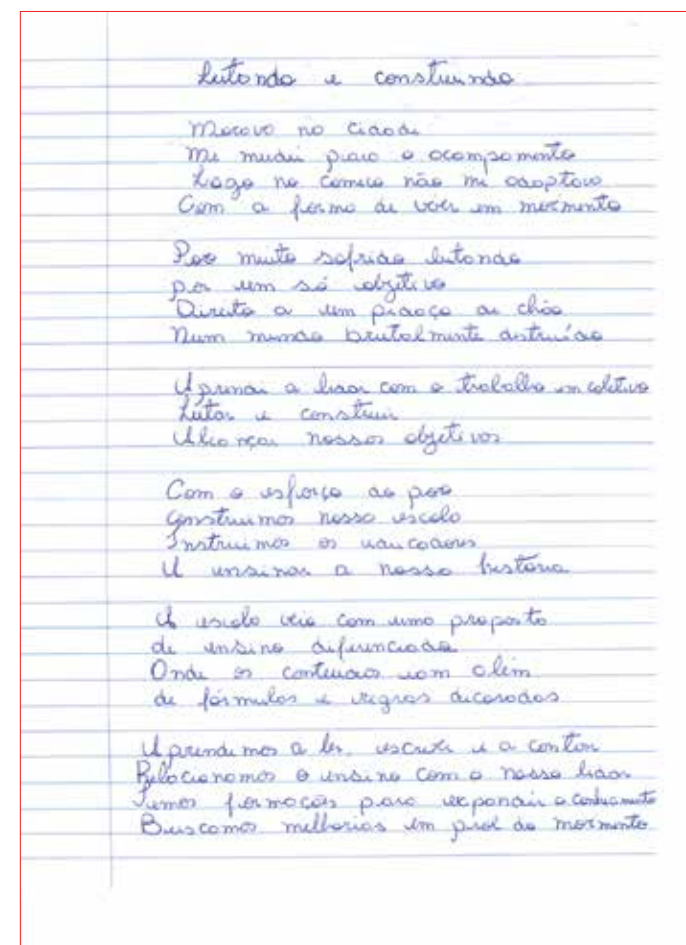 Lutando e construindo
Morava na cidade
Me mudei para o acampamento
Logo no começo não me adaptava
Com a forma de viver em movimento
Povo muito sofrido lutando
por um só objetivo
Direito a um pedaço de chão
Num mundo brutalmente destruído
Aprendi a lidar com o trabalho em coletivo
Lutar e construir
Alcançar nossos objetivos
Com o esforço do povo
Construimos nossa escola
Instruimos os educadores
A ensinar a nossa história
A escola veio com uma proposta
de ensino diferenciada
Onde os conteúdos vam além
de fórmulas e regras decoradas
Aprendemos a ler, escrever e a contar
Relacionamos o ensino com a nossa lidar
Temos formações para expandir o conhecimento
Buscamos melhorias em prol do movimento